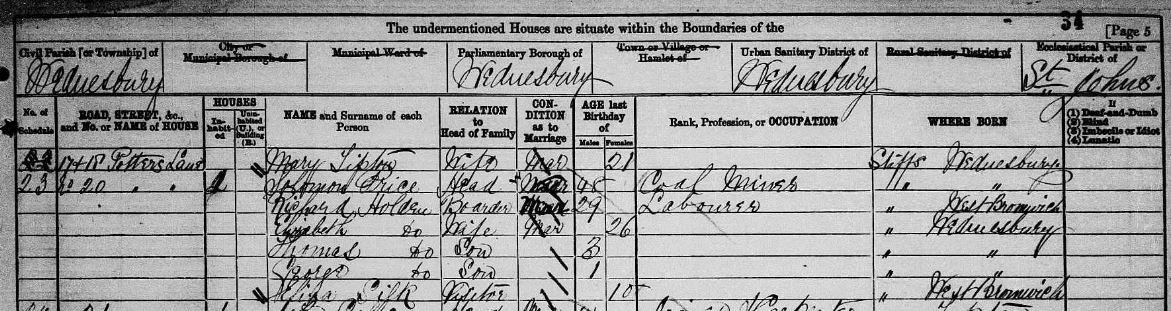 34
The undermentioned Houses are situate within the Boundaries of the [Page 5
Civil Parish [or Township] of City or Municipal Borough of Municipal Ward of Parliamentary Borough of Town or Village or Hamlet of Urban Sanitary District of Rural Sanitary District of Ecclesiastical Parish or District of
Wednesbury Wednesbury Wednesbury St Johns.
No. of Schedule ROAD, STREET, &c., and No. or NAME of HOUSE HOUSES Inhabited Uninhabited (U.), or Building (B.) NAME and Surname of each Person RELATION to Head of Family CONDITION as to Marriage AGE last Birthday of Males Females Rank, Profession, or OCCUPATION WHERE BORN If (1) Deaf-and-Dumb (2) Blind (3) Imbecile or Idiot (4) Lunatic
22 17+18 Potters Lane Mary Tipton Wife Mar 21 Staffs Wednesbury
23 20 " " 1 Solomon Price Head 45 Coal Miner " "
Richard Holden Boarder Mar 29 Labourer " West Bromwich
Elizabeth Do Wife Mar 26 " Wednesbury
Thomas Do Son 3 " "
George Do Son 1 " "
Visitor 10 " West Bromwich